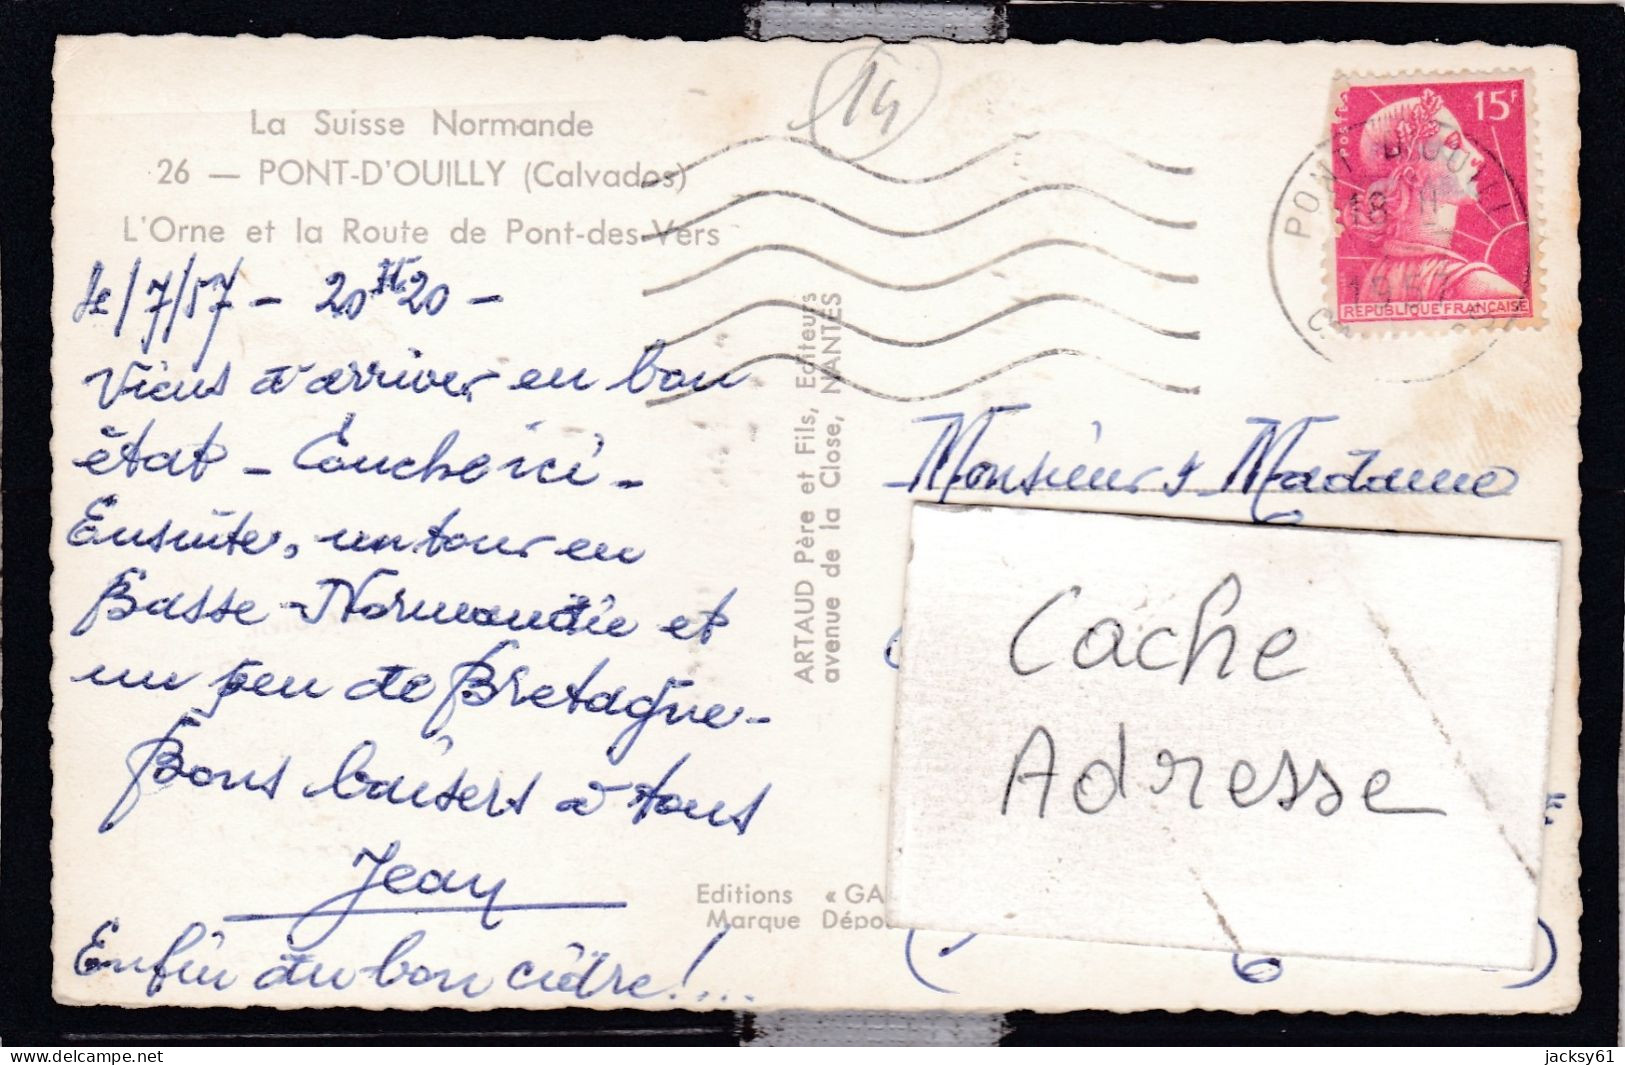 La Suisse Normande
26 — PONT-D'OUILLY (Calvados)
L'Orne et la Route de Pont-des-Vers
14
15F
REPUBLIQUE FRANÇAISE
PONT D'OUILLY
18 H
1957
le /7/57 - 20H20 -
Viens d'arriver en bon
état - Couche ici -
Ensuite, un tour en
Basse-Normandie et
un peu de Bretagne -
Bons baisers à tous
Jean
Enfin du bon cidre !...
ARTAUD Père et Fils, Editeurs
avenue de la Close, NANTES
Editions « GA
Marque Dépo
Monsieur & Madame
Cache
Adresse
jacksy61